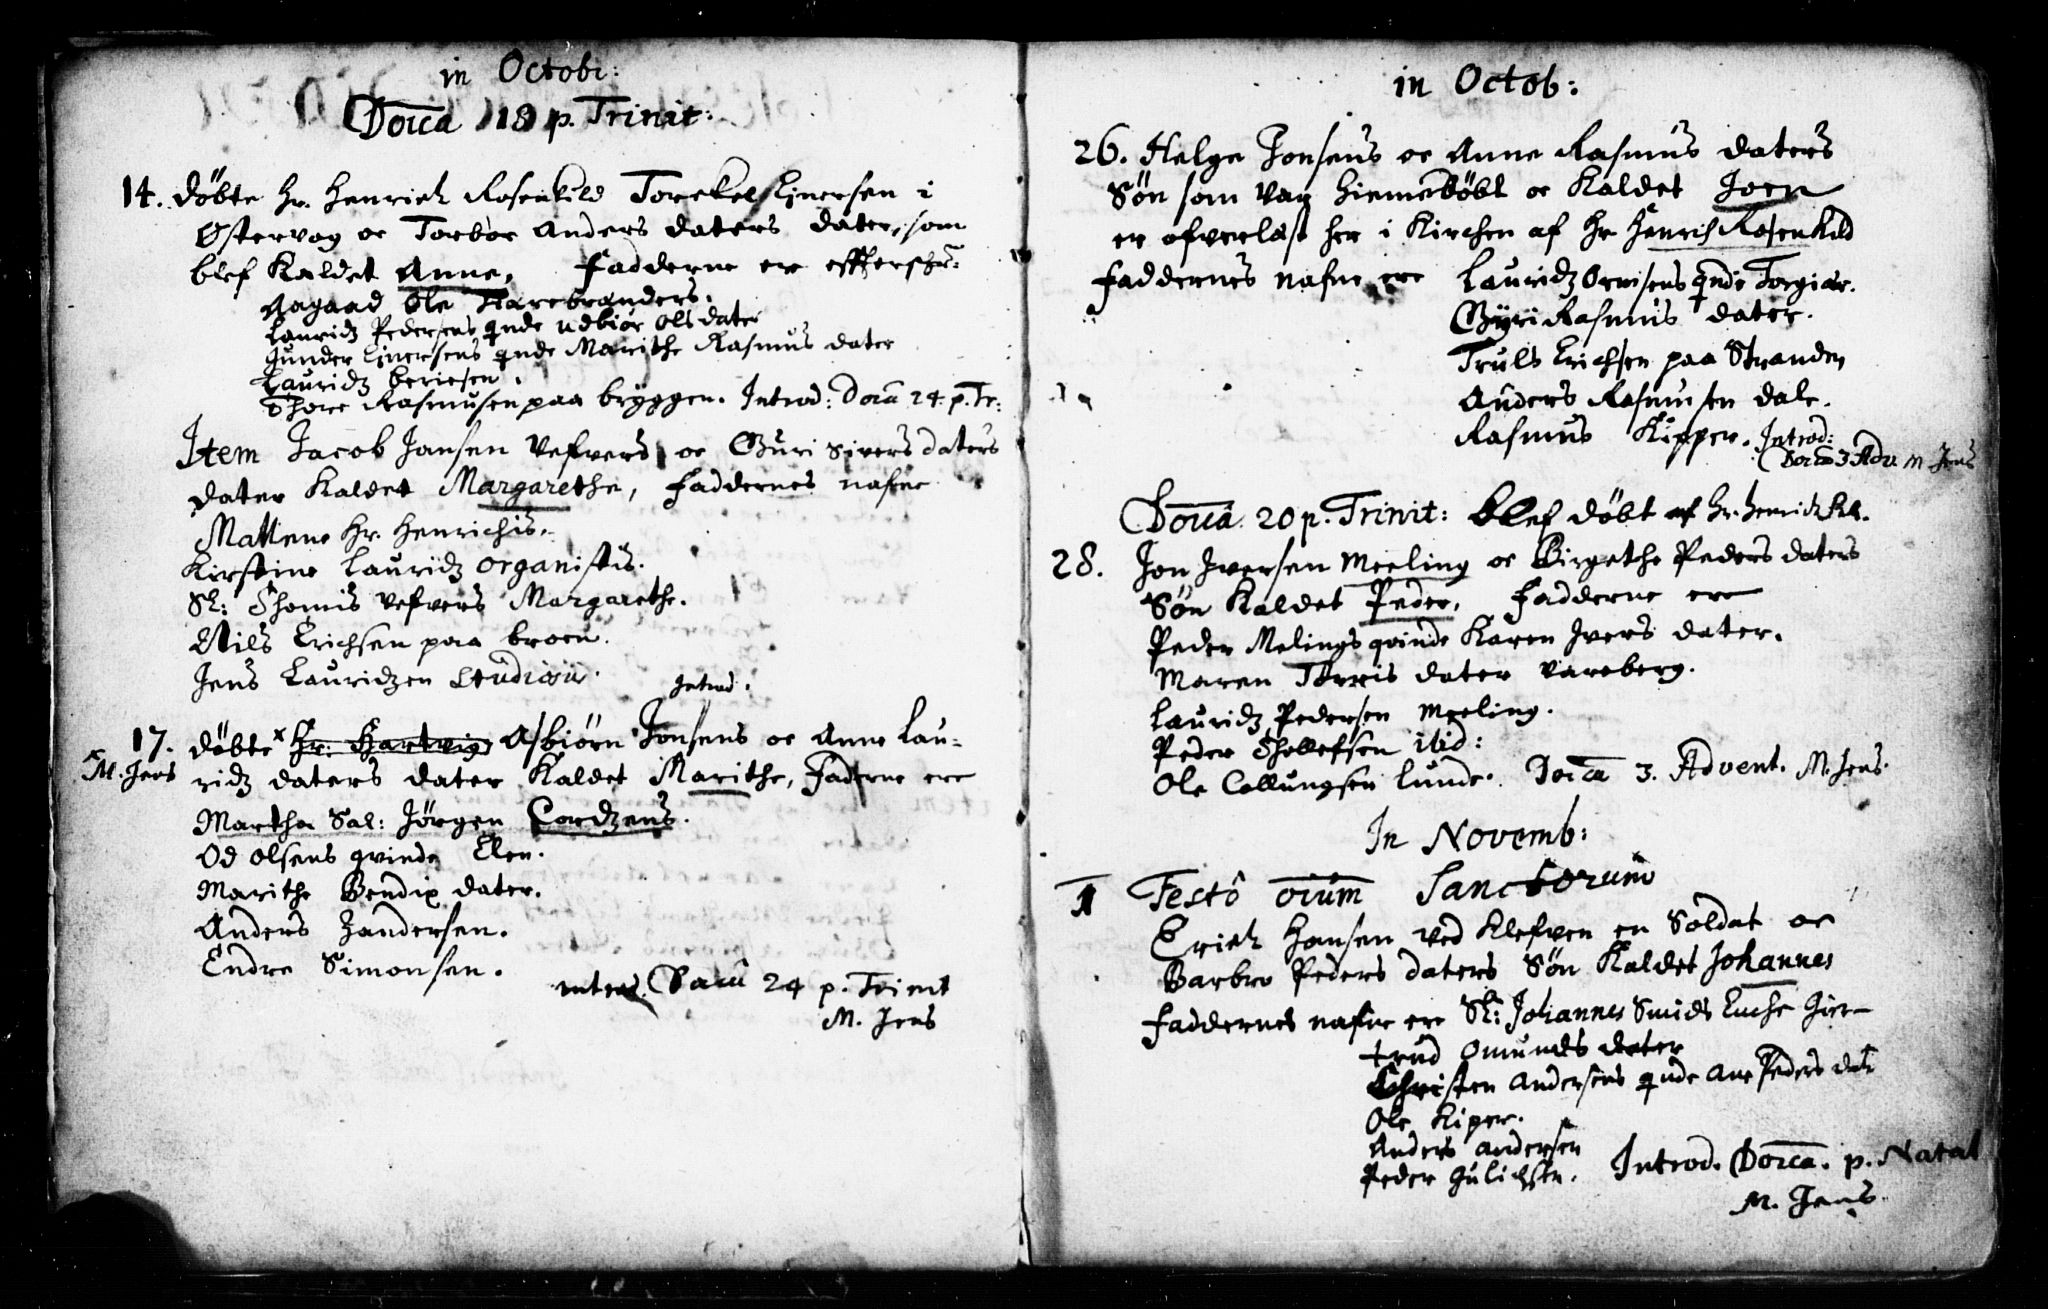 in Octobr:
Doîca 18 p. Trinit:
14. døbte Hr. Henrich Rosenkild Torekel Einersen i
Østervog oc Torbor Anders daters dater, som
blef kaldet Anne, Fadderne er effterschr:
Aagaad Ole Harebranders.
Lauridz Pedersens qnde Udbiør Ols dater
Gunder Einersens qnde Marithe Rasmus dater
Lauridz beriesen.
Thore Rasmusen paa bryggen. Introd: Doîca 24. p. Tr:
Item Jacob Jansen Vefvers oc Guri Sivers daters
dater kaldet Margarethe, Faddernes nafne
Mattene Hr. Henrichis.
Kirstine Lauridz organistis.
Sl: Thomis Vefvers Margarethe.
Nils Erichsen paa broen.
Jens Lauridzen Studiosi.
Introd.
17. døbte Hr. Hartvig Asbiørn Jonsens oc Anne Lau-
M. Jens ridz daters dater kaldet Marithe, Faderne ere
Martha Sal: Jørgen Cordzens.
Od Olsens qvinde Elen.
Marithe Bendix dater.
Anders Zandersen.
Endre Simonsen.
introd. Doîca 24 p. Trinit
M. Jens
in Octob:
26. Helge Jonsens oc Anne Rasmus daters
Søn som var hiemedøbt oc kaldet Joen
er ofverlæst her i Kirchen af Hr Henrich Rosenkild
Faddernes nafne ere Lauridz Ormsens qnde Torgier.
Gÿri Rasmus dater.
Truls Erichsen paa Stranden
Anders Rasmusen dale.
Rasmus Kipper. Introd:
Doîca 3 Adv M Jens
Doîca. 20 p. Trinit: blef døbt af Hr. Henrich Kil.
28. Jon Iversen Meeling oc Birgethe Peders daters
Søn kaldet Peder, Fadderne ere
Peder Melings qvinde Karen Ivers dater.
Maren Tørris dater Vareberg.
Lauridz Pedersen Meeling.
Peder Thollefsen ibid:
Ole Collungsen Lunde. Doîca 3. Advent. M. Jens.
In Novemb:
1 Festo oîum Sanctorum
Erich Hansen ved Klefven en Soldat oc
Barbro Peders daters Søn kaldet Johannes
Faddernes nafne ere Sl: Johannes Smids Enche Gier-
trud Omunds dater
Christen Andersens qnde Ane Peders datr
Ole Kiper.
Anders Andersen
Peder Gulichsen. Introd. Doîca. p. Natal
M. Jens.